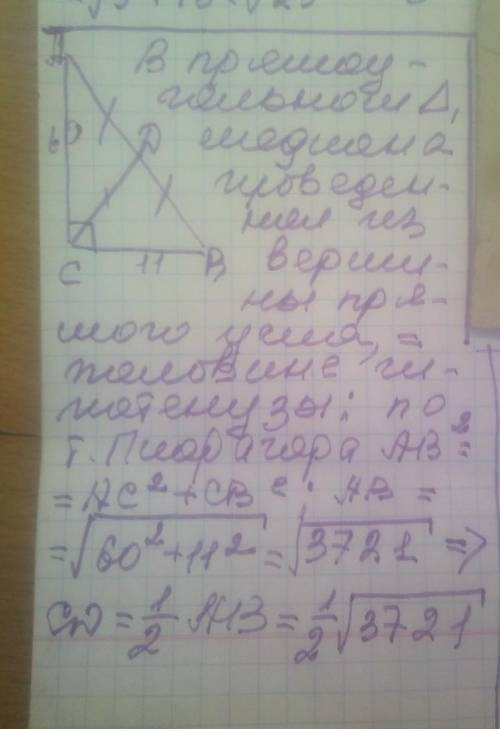 A
В прямоу-
гольном Δ,
60
D
медиана
проведен-
ная из
C
11
B
верши-
ны пря-
мого угла, =
половине ги-
потенузы: по
т. Пифагора AB²=
= AC² + CB²; AB =
= √60² + 11² = √3721 =>
CD = 1/2 AB = 1/2 √3721